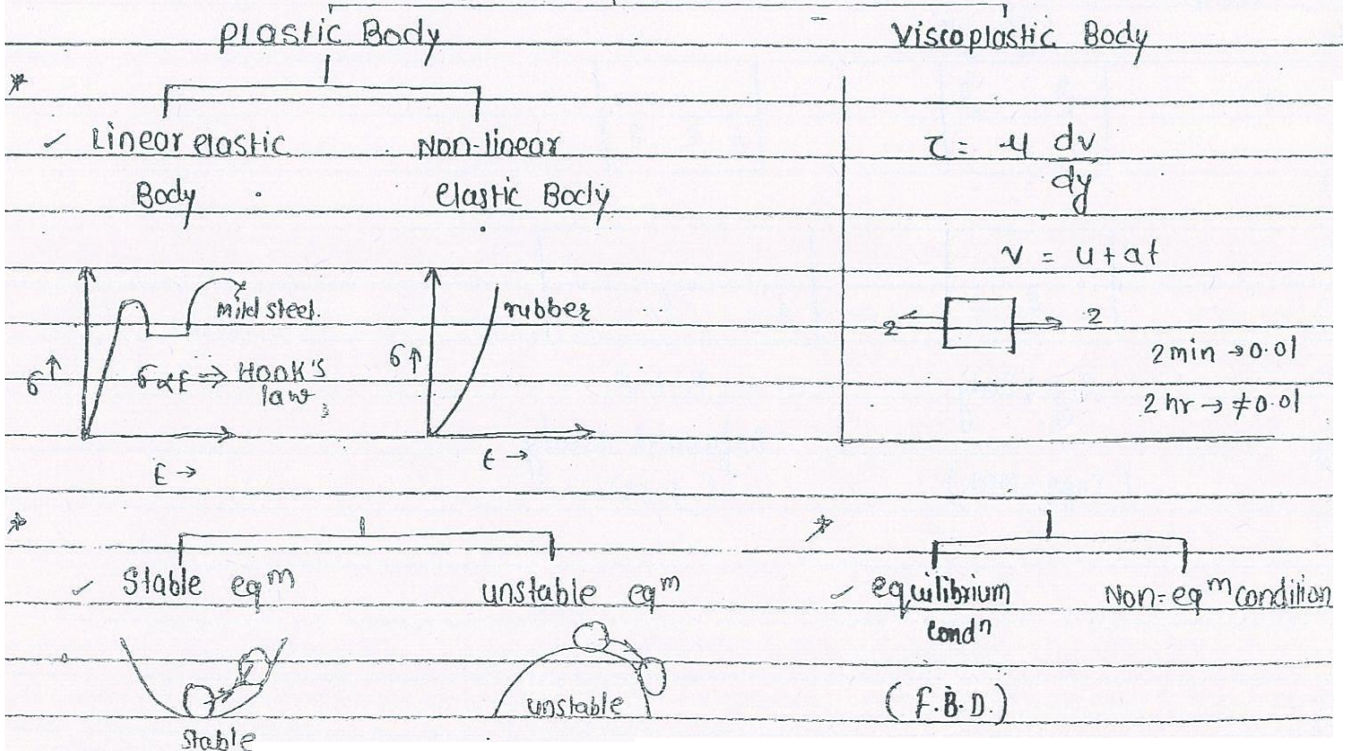 Plastic Body
Viscoplastic Body
* ✓ Linear elastic Body
Non-linear elastic Body
σ↑
mild steel.
σ∝ε ⇒ Hook's law
ε →
σ↑
rubber
ε →
τ = μ dv/dy
v = u + at
2 ← → 2
2 min → 0.01
2 hr → ≠ 0.01
* ✓ Stable eqm
unstable eqm
stable
unstable
* ✓ equilibrium condn
Non-eqm condition
(F.B.D.)